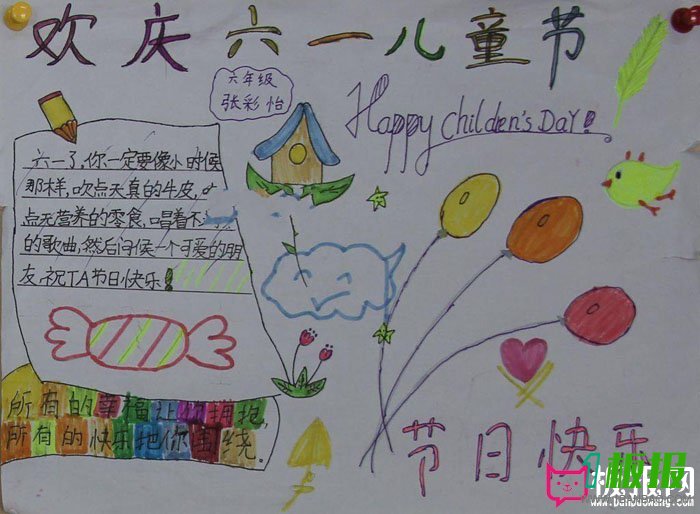 欢庆六一儿童节
六年级
张彩怡
Happy Childen's DAY!
六一了,你一定要像小时候
那样,吹点天真的牛皮,
点无营养的零食,唱着不
的歌曲,然后问候一个可爱的朋
友,祝TA节日快乐!
所有的幸福让你拥抱,
所有的快乐把你围绕.
节日快乐
板报网